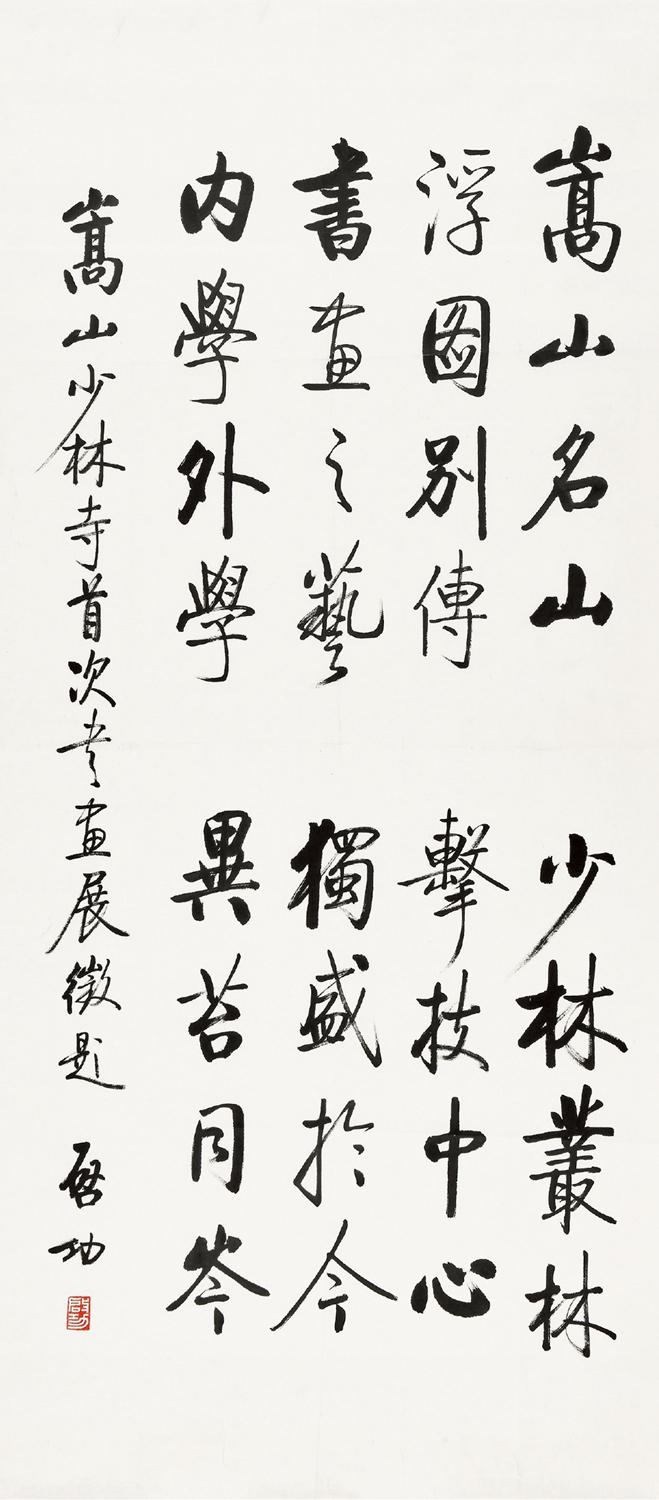 嵩山名山 少林叢林
浮圖別傳 擊技中心
書畫之藝 獨盛於今
内學外學 異苔同岑
嵩山少林寺首次書畫展徵題 啓功
啟功